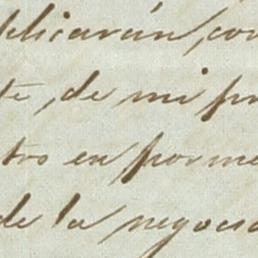 plicarán, con
te, de mi pr
tro en porme
de la negocia